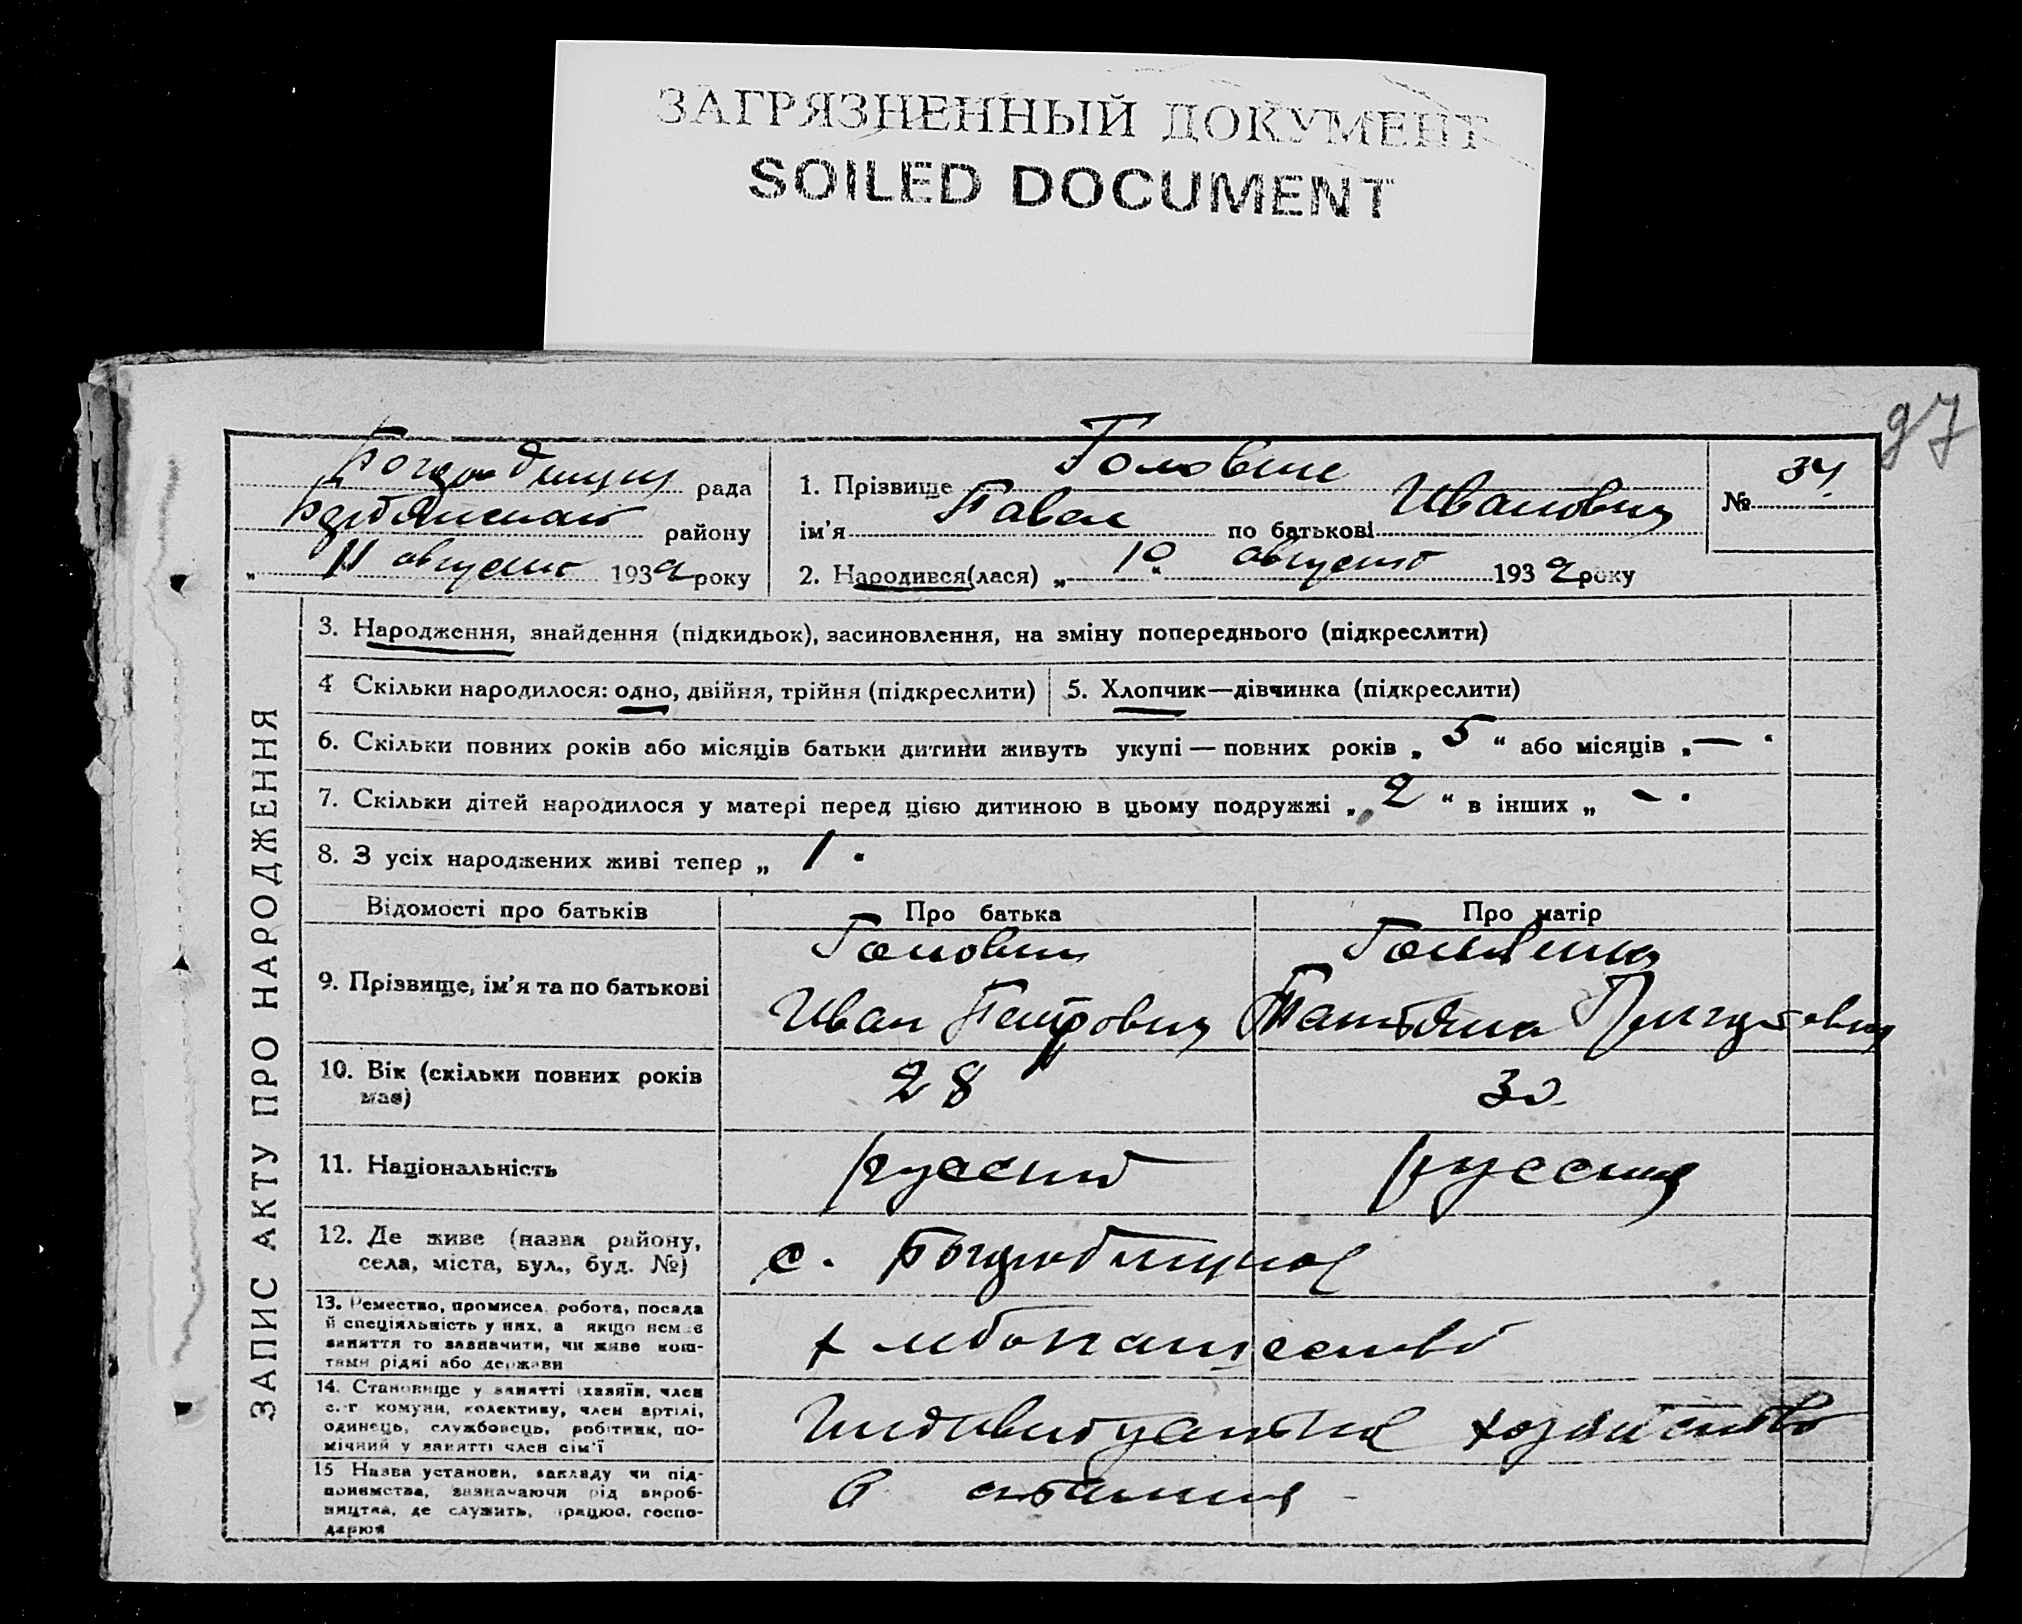 ЗАГРЯЗНЕННЫЙ ДОКУМЕНТ
SOILED DOCUMENT
97
рада
району
„ 11 августа 1932 року
1. Прізвище Головин
ім’я Павел по батькові Иванович
2. Народився(лася) „ 10 “ августа 1932 року
№ 34
ЗАПИС АКТУ ПРО НАРОДЖЕННЯ
3. Народження, знайдення (підкидьок), засиновлення, на зміну попереднього (підкреслити)
4 Скільки народилося: одно, двійня, трійня (підкреслити)
5. Хлопчик—дівчинка (підкреслити)
6. Скільки повних років або місяців батьки дитини живуть укупі — повних років „ 5 “ або місяців „ — “
7. Скільки дітей народилося у матері перед цією дитиною в цьому подружжі „ 2 “ в інших „ — “
8. З усіх народжених живі тепер „ 1 “
Відомості про батьків
Про батька
Про матір
9. Прізвище, ім’я та по батькові
Головин
Иван Петрович
Головина
Татьяна
10. Вік (скільки повних років
має)
28
30
11. Національність
русский
русская
12. Де живе (назва району,
села, міста, вул., буд. №)
с.
13. Ремество, промисел, робота, посада
й спеціяльність у них, а якщо немає
заняття то зазначити, чи живе кош-
тами рідні або держави
хлебопашество
14. Становище у занятті (хазяїн, член
с.-г комуни, колективу, член артілі,
одинець, службовець, робітник, по-
мічний у занятті член сім’ї
Индивидуальное хозяйство
15 Назва установи, закладу чи під-
приємства, зазначаючи рід вироб-
ництва, де служить, працює, госпо-
дарює